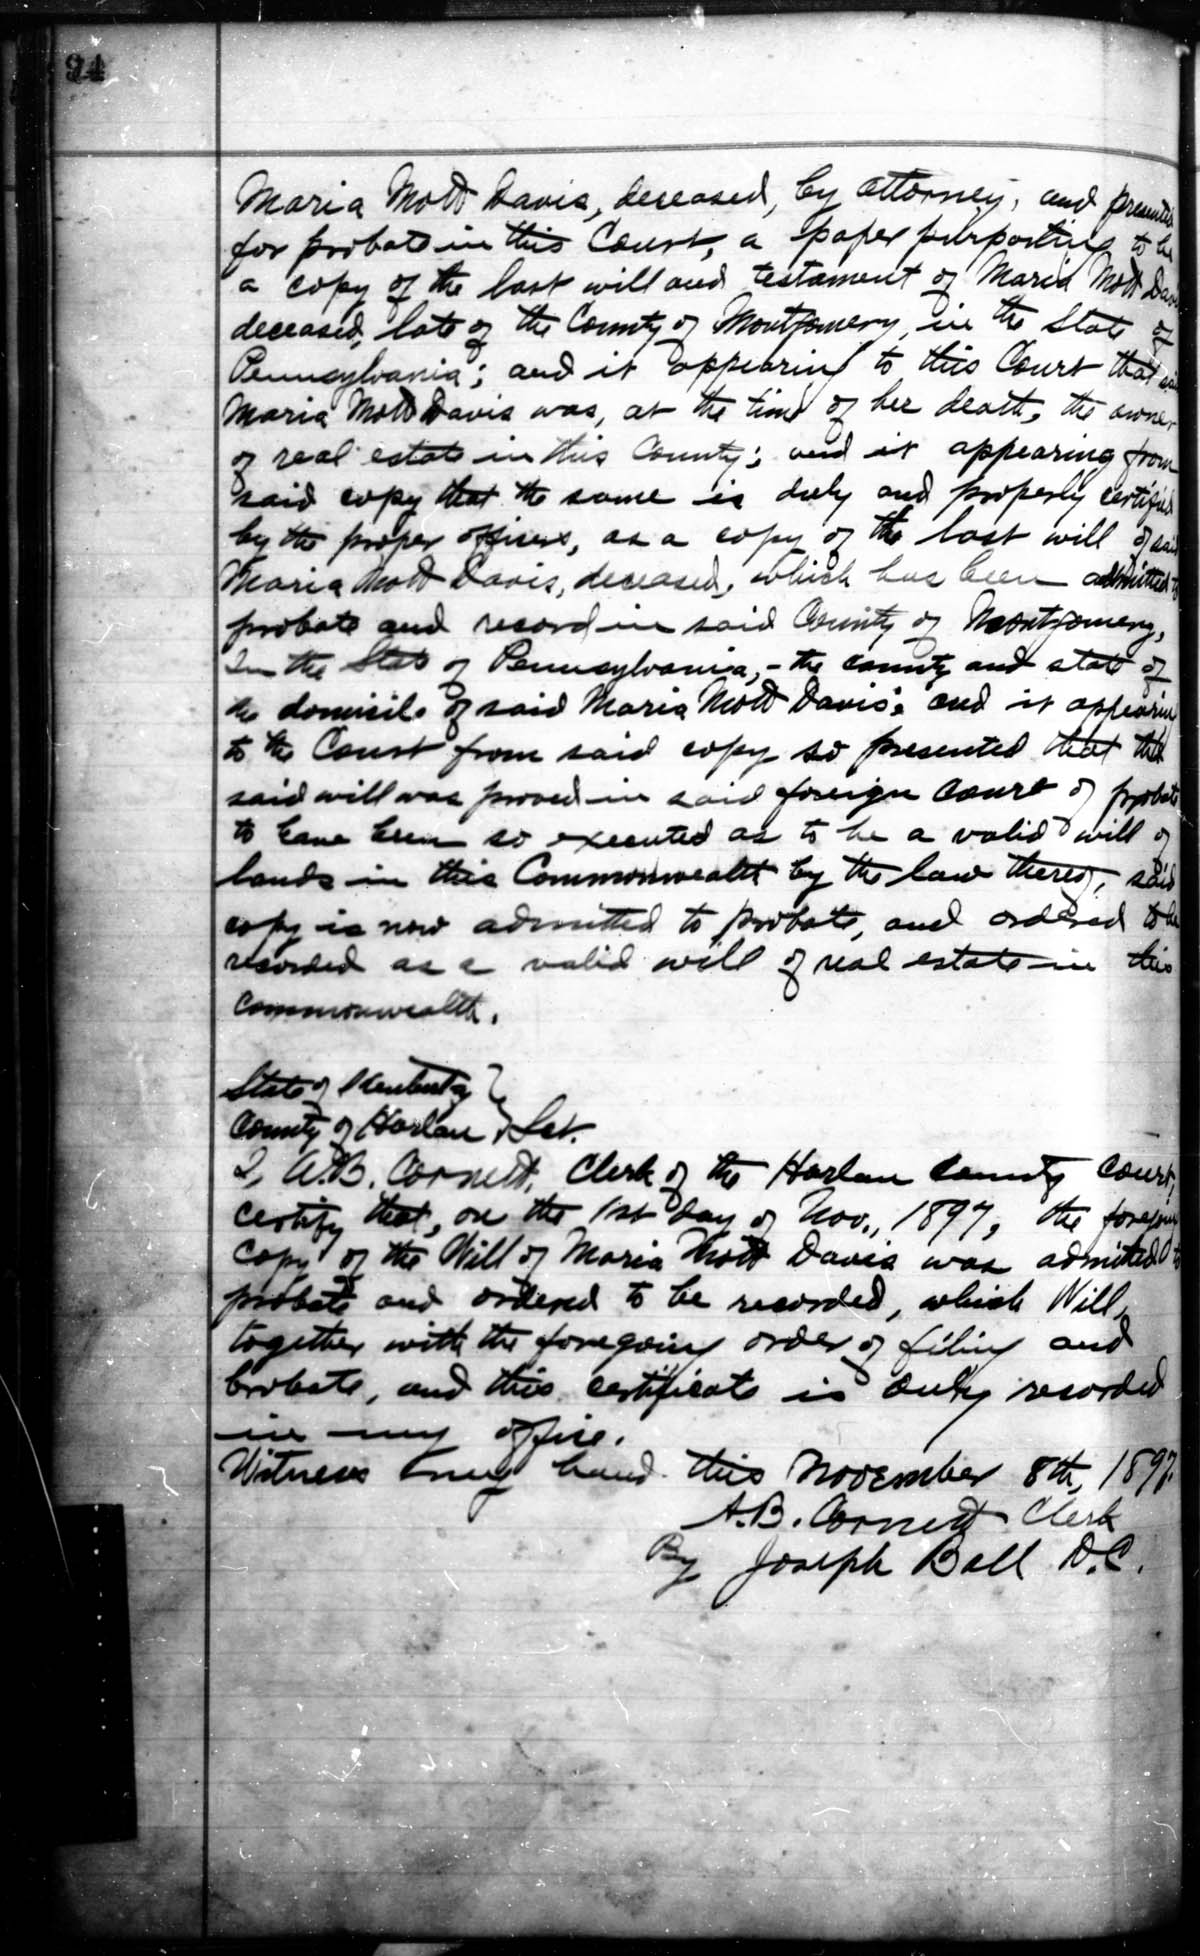 94
Maria Mott Davis, deceased, by attorney, and presented
for probate in this Court, a paper purporting to be
a copy of the last will and testament of Maria Mott Davis
deceased, late of the County of Montgomery, in the State of
Pennsylvania; and it appearing to this Court that said
Maria Mott Davis was, at the time of her death, the owner
of real estate in this County; and it appearing from
said copy that the same is duly and properly certified
by the proper officers, as a copy of the last will of said
Maria Mott Davis, deceased, which has been admitted to
probate and record in said County of Montgomery,
In the State of Pennsylvania, - the county and state of
the domicile of said Maria Mott Davis; and it appearing
to the Court from said copy so presented that the
said will was proved in said foreign court of probate
to have been so executed as to be a valid will of
lands in this Commonwealth by the law thereof, said
copy is now admitted to probate, and ordered to be
recorded as a valid will of real estate in this
Commonwealth.
State of Kentucky }
County of Harlan } Sct.
I, A.B. Cornett, Clerk of the Harlan County Court,
certify that, on the 1st day of Nov., 1897, the foregoing
copy of the Will of Maria Mott Davis was admitted to
probate and ordered to be recorded, which Will,
together with the foregoing order of filing and
probate, and this certificate is duly recorded
in my office.
Witness my hand this November 8th, 1897.
A.B. Cornett Clerk
By Joseph Ball D.C.